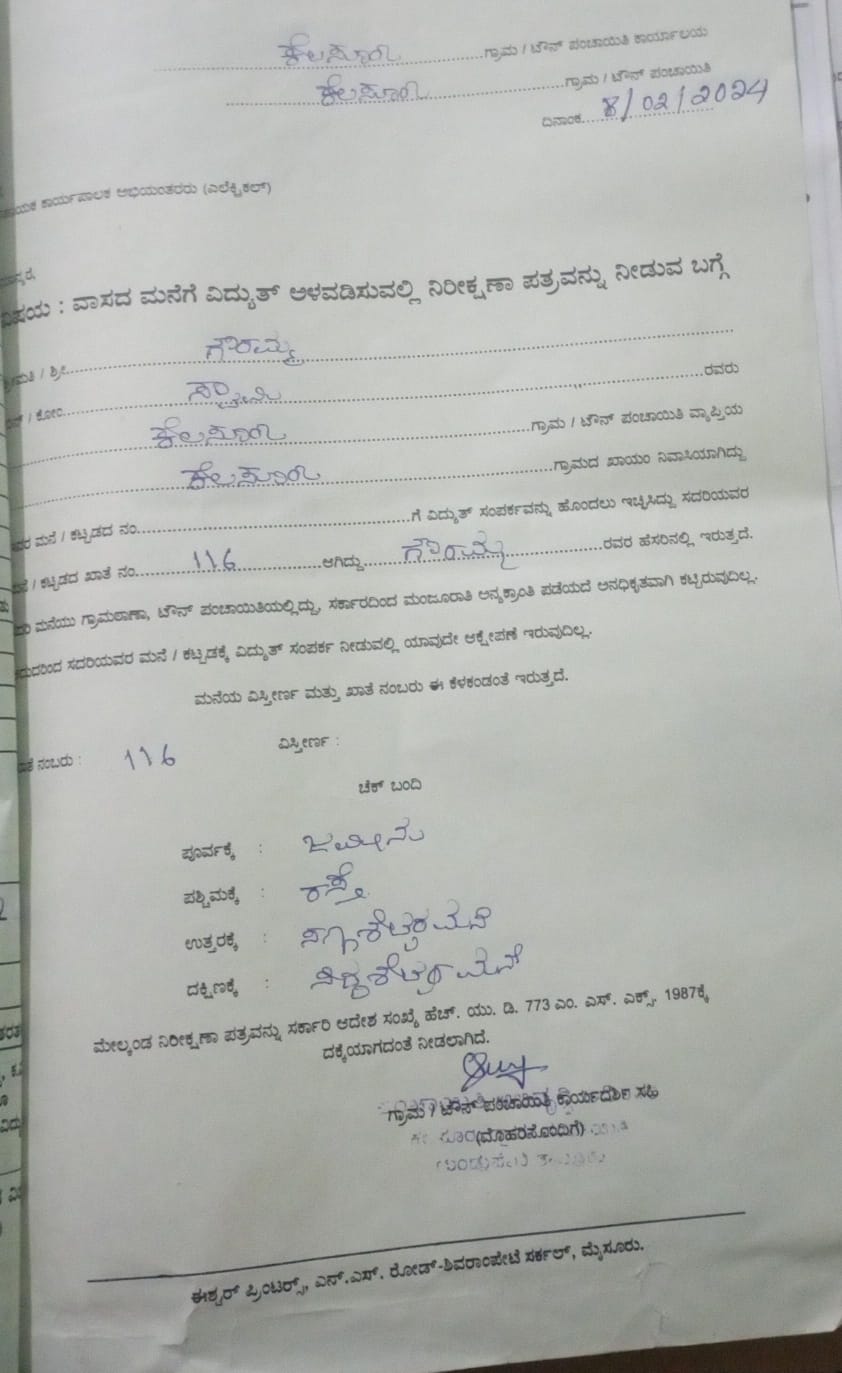 ಕೆಲಸೂರು ಗ್ರಾಮ / ಟೌನ್ ಪಂಚಾಯಿತಿ ಕಾರ್ಯಾಲಯ
ಕೆಲಸೂರು ಗ್ರಾಮ / ಟೌನ್ ಪಂಚಾಯಿತಿ
ದಿನಾಂಕ 8/02/2024
ಕಾರ್ಯಪಾಲಕ ಅಭಿಯಂತರರು (ಎಲೆಕ್ಟ್ರಿಕಲ್)
ವಿಷಯ : ವಾಸದ ಮನೆಗೆ ವಿದ್ಯುತ್ ಅಳವಡಿಸುವಲ್ಲಿ ನಿರೀಕ್ಷಣಾ ಪತ್ರವನ್ನು ನೀಡುವ ಬಗ್ಗೆ
/ ಶ್ರೀ ಗೌರಮ್ಮ
/ ಕೋಂ ರವರು
ಕೆಲಸೂರು ಗ್ರಾಮ / ಟೌನ್ ಪಂಚಾಯಿತಿ ವ್ಯಾಪ್ತಿಯ
ಕೆಲಸೂರು ಗ್ರಾಮದ ಖಾಯಂ ನಿವಾಸಿಯಾಗಿದ್ದು
ಮನೆ / ಕಟ್ಟಡದ ನಂ. ಗೆ ವಿದ್ಯುತ್ ಸಂಪರ್ಕವನ್ನು ಹೊಂದಲು ಇಚ್ಛಿಸಿದ್ದು ಸದರಿಯವರ
/ ಕಟ್ಟಡದ ಖಾತೆ ನಂ. 116 ಆಗಿದ್ದು ಗೌರಮ್ಮ ರವರ ಹೆಸರಿನಲ್ಲಿ ಇರುತ್ತದೆ.
ಮನೆಯು ಗ್ರಾಮಠಾಣಾ, ಟೌನ್ ಪಂಚಾಯಿತಿಯಲ್ಲಿದ್ದು, ಸರ್ಕಾರದಿಂದ ಮಂಜೂರಾತಿ ಅನ್ಯಕ್ರಾಂತಿ ಪಡೆಯದೆ ಅನಧಿಕೃತವಾಗಿ ಕಟ್ಟಿರುವುದಿಲ್ಲ.
ಸದರಿಯವರ ಮನೆ / ಕಟ್ಟಡಕ್ಕೆ ವಿದ್ಯುತ್ ಸಂಪರ್ಕ ನೀಡುವಲ್ಲಿ ಯಾವುದೇ ಆಕ್ಷೇಪಣೆ ಇರುವುದಿಲ್ಲ.
ಮನೆಯ ವಿಸ್ತೀರ್ಣ ಮತ್ತು ಖಾತೆ ನಂಬರು ಈ ಕೆಳಕಂಡಂತೆ ಇರುತ್ತದೆ.
ನಂಬರು : 116 ವಿಸ್ತೀರ್ಣ :
ಚೆಕ್ ಬಂದಿ
ಪೂರ್ವಕ್ಕೆ : ಜಮೀನು
ಪಶ್ಚಿಮಕ್ಕೆ : ರಸ್ತೆ
ಉತ್ತರಕ್ಕೆ : ಮನೆ
ದಕ್ಷಿಣಕ್ಕೆ : ಮನೆ
ಮೇಲ್ಕಂಡ ನಿರೀಕ್ಷಣಾ ಪತ್ರವನ್ನು ಸರ್ಕಾರಿ ಆದೇಶ ಸಂಖ್ಯೆ ಹೆಚ್. ಯು. ಡಿ. 773 ಎಂ. ಎಸ್. ಎಕ್ಸ್. 1987ಕ್ಕೆ
ದಕ್ಕೆಯಾಗದಂತೆ ನೀಡಲಾಗಿದೆ.
ಗ್ರಾಮ / ಟೌನ್ ಪಂಚಾಯಿತಿ ಕಾರ್ಯದರ್ಶಿ ಸಹಿ
(ಮೊಹರಿನೊಂದಿಗೆ)
ಈಶ್ವರ್ ಪ್ರಿಂಟರ್ಸ್, ಎನ್.ಎಸ್. ರೋಡ್-ಶಿವರಾಂಪೇಟೆ ಸರ್ಕಲ್, ಮೈಸೂರು.